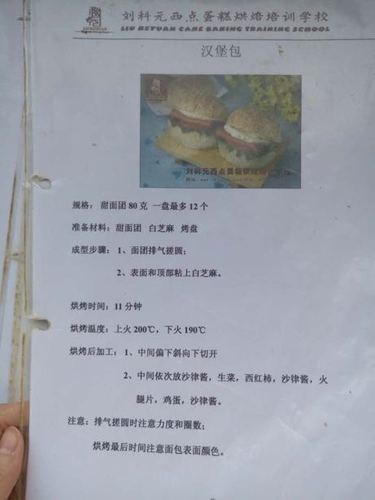 刘科元西点蛋糕烘焙培训学校
LIU KEYUAN CAKE BAKING TRAINING SCHOOL
汉堡包
刘科元西点蛋糕
规格：甜面团 80 克 一盘最多 12 个
准备材料：甜面团 白芝麻 烤盘
成型步骤：1、面团排气搓圆；
2、表面和顶部粘上白芝麻。
烘烤时间：11 分钟
烘烤温度：上火 200℃，下火 190℃
烘烤后加工：1、中间偏下斜向下切开
2、中间依次放沙律酱，生菜，西红柿，沙律酱，火
腿片，鸡蛋，沙律酱。
注意：排气搓圆时注意力度和圈数；
烘烤最后时间注意面包表面颜色。